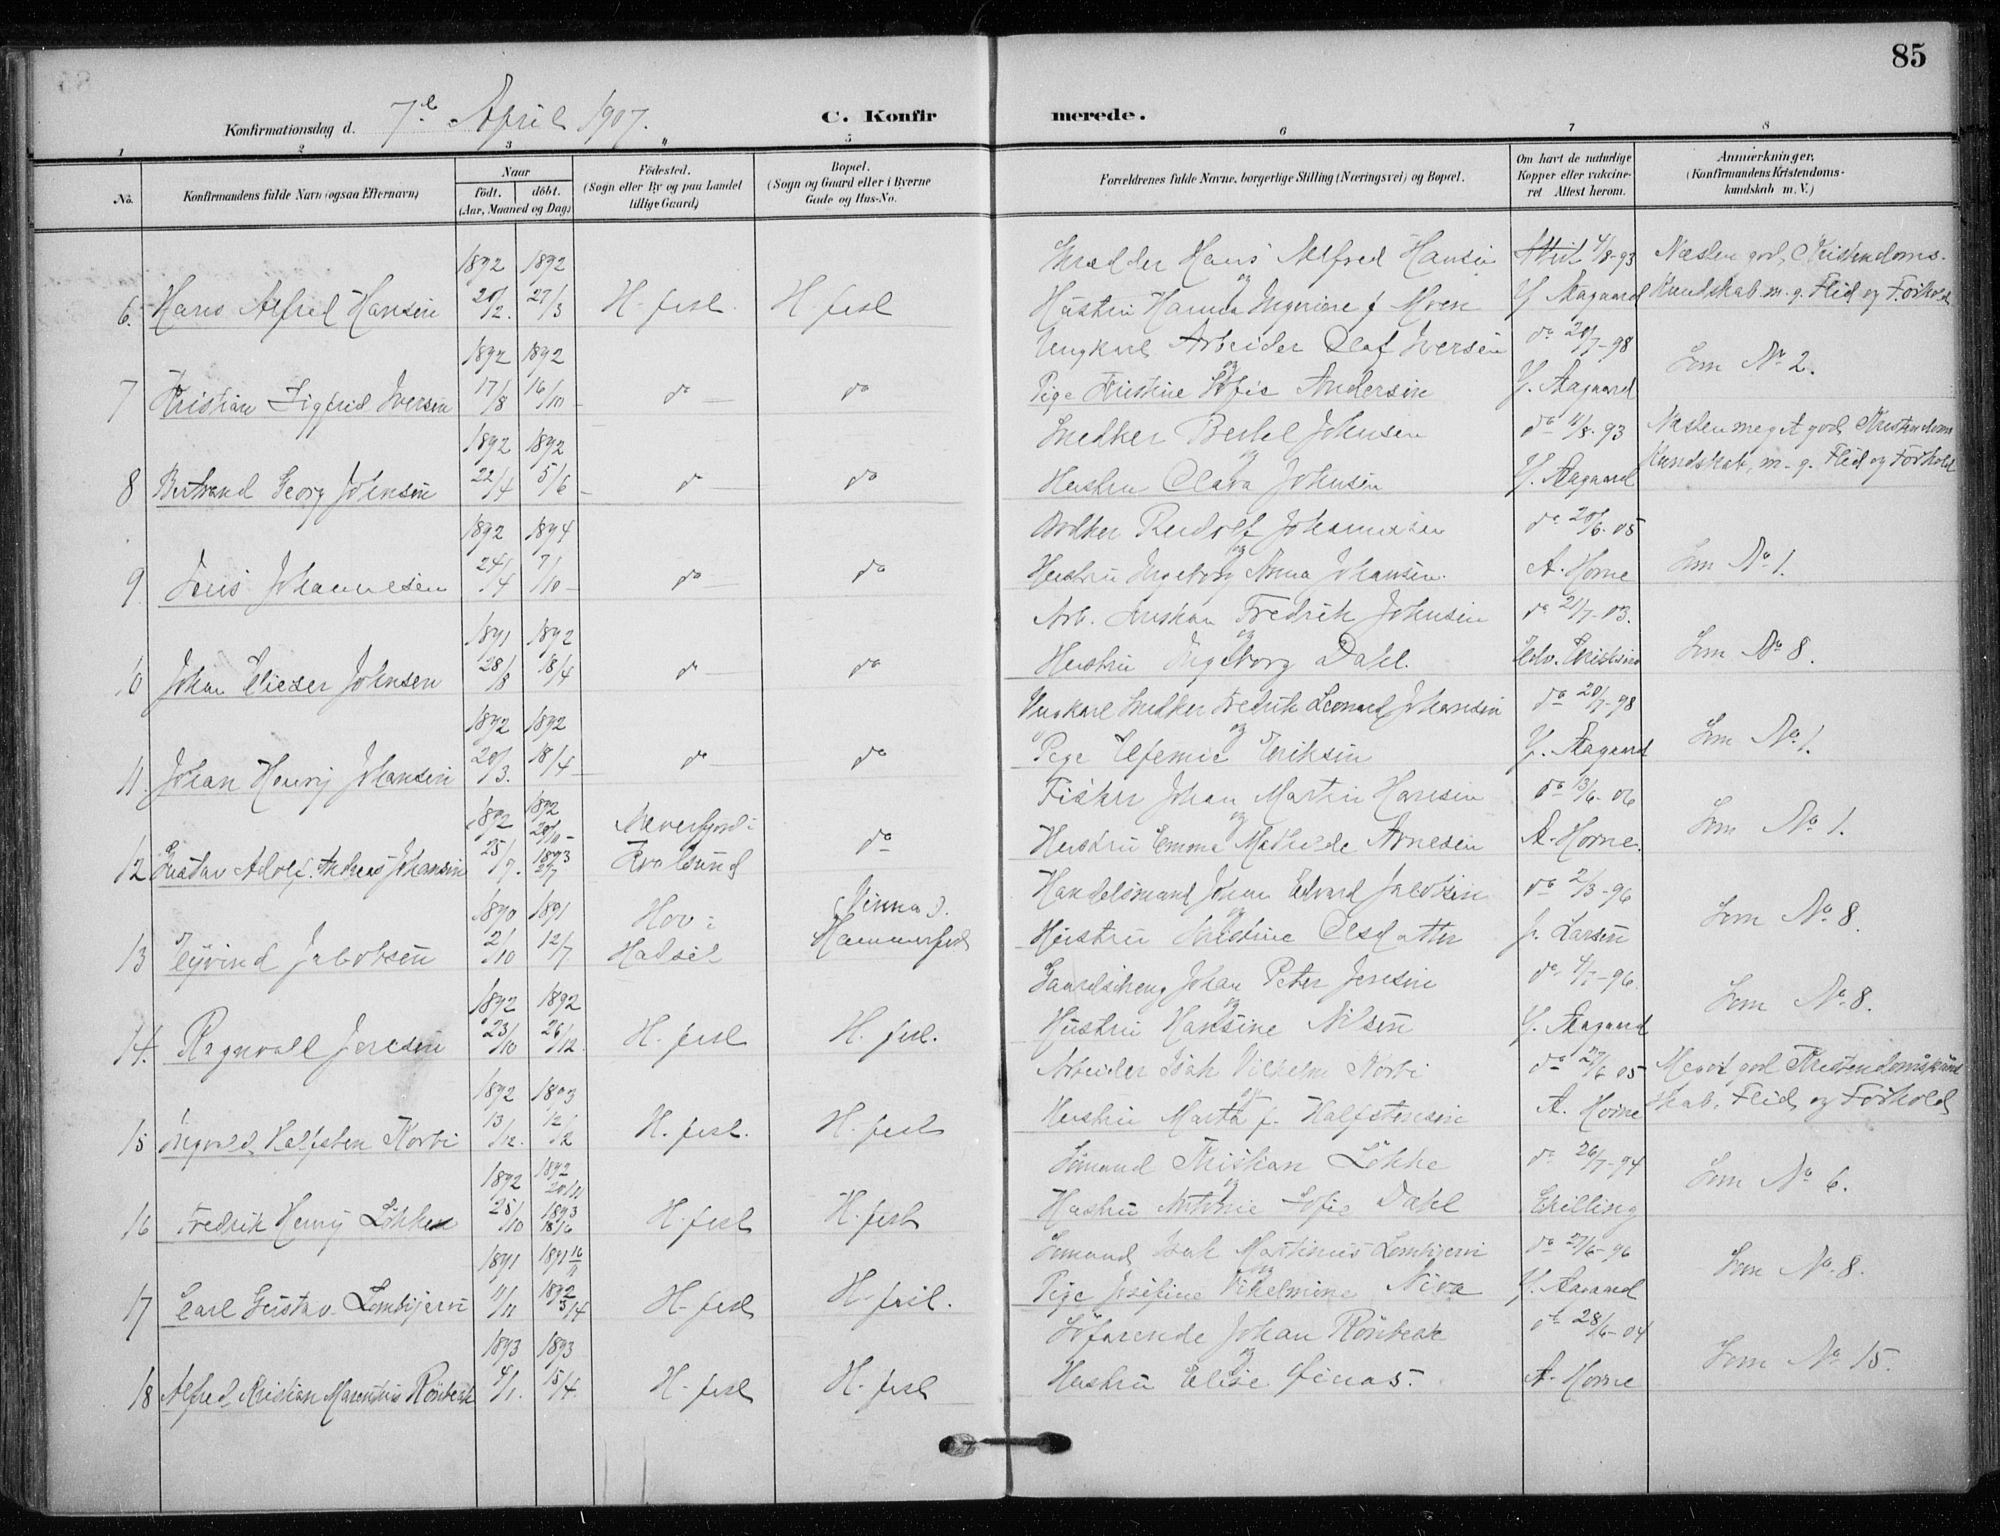 85
Konfirmationsdag d. 7de April 1907. C. Konfirmerede.
1 2 3 4 5 6 7 8
No. Konfirmandens fulde Navn (ogsaa Efternavn) Naar født. døbt. (Aar, Maaned og Dag) Fødested. (Sogn eller By og paa Landet tillige Gaard) Bopæl. (Sogn og Gaard eller i Byerne Gade og Hus-No. Forældrenes fulde Navne, borgerlige Stilling (Næringsvei) og Bopæl. Om havt de naturlige Kopper eller vakcineret Attest herom. Anmærkninger. (Konfirmandens Kristendomskundskab m. V.)
1892 1892 Hans Alfred Hansen 4/8-93 Næsten god Kristendoms-
6. Hans Alfred Hansen 20/2. 27/3 H-fest. H-fest Hustru Hanna f. Moen Y. Aagaard Kundskab m. g. Flid og Forhold
1892 1892 Ungkarl Arbeider Olaf Iversen do 20/7-98
7 Kristian Sigfrid Iversen 17/8 16/10 do do Pige Kristine Sofie Andersen Y. Aagaard Som No 2.
1892 1892 Snedker Bertel Johnsen do 11/8-93 Næsten meget god Kristendoms
8 Bertrand Georg Johnsen 22/4 5/6 do do Hustru Clara Johnsen Y. Aagaard Kundskab, m. g. Flid og Forhold
1892 1894 Bødker Rudolf Johannesen do 20/6-05
9 Johannesen 24/4 7/10 do do Hustru Ingeborg Anna Johansen. A. Horne Som No 1.
1891 1892 Arb. Fredrik Johnsen do 21/7-03.
10 Johan Elieser Johnsen 28/8 18/4 do do Hustru Ingeborg Dahl. Som No 8.
1892 1892 Ungkarl Snedker Fredrik Leonard Johansen do 20/7-98
11. Johan Henry Johansen 20/3. 18/4 do do Pige Efemie Eriksen Y. Aagaard Som No 1.
1892 1892 20/10 Næverfjord i Fisker Johan Martin Hansen do 13/6-06
12 Gustav Adolf Andreas Johansen 25/7. 1893 Kvalsund do Hustru Emma Mathilde Arnesen A. Horne. Som No 1.
1890 1891 Hov i Handelsmand Johan Edvard Jakobsen do 2/3-96
13 Eyvind Jakobsen 2/10 12/7 Hadsel Hammerfest Hustru Olsdatter J. Larsen Som No 8.
1892 1892 Johan Peter Jensen do 4/7-96.
14. Ragnvald Jensen 23/10 26/12 H-fest H-fest. Hustru Hansine Nilsen Y. Aagaard Som No 8.
1892 1893 Arbeider Isak Vilhelm Korbi do 27/6 05 Meget god Kristendomskund
15 Ingvald Halfsten Korbi 13/12. 12/2 H-fest. H-fest Hustru Marta f. Halfstensen A. Horne skab, Flid og Forhold
1892 1892 20/12 Sømand Kristian Løkke do 26/7-94
16 Fredrik Henry Løkke 25/10 1893 18/6 H-fest H-fest Hustru Antonie Sofie Dahl Skilling Som No 6.
1891 1891 16/11 Sømand Isak Martinus Lombjervi do 27/6-96
17 Carl Gustav Lombjervi 11/11 1892 3/4 H-fest H-fest. Pige Josefine Vilhelmine Niva Y. Aagaard Som No 8.
1893 1893 Søfarende Johan Rönbeck do 28/6-04
18 Alfred Kristian Marentius Rönbeck 4/1. 15/4. H-fest H-fest Hustru Elise A. Horne Som No 15.